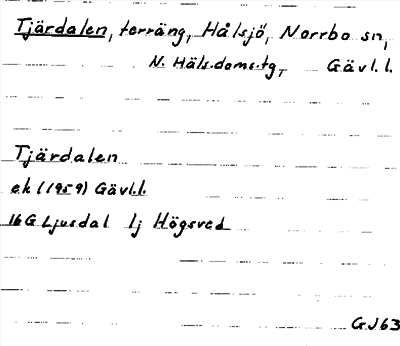 Tjärdalen, terräng, Hålsjö, Norrbo sn,
N. Häls.doms.tg, Gävl.l.
Tjärdalen
ek (1959) Gävl.l.
16G Ljusdal 1j Högsved
GJ63